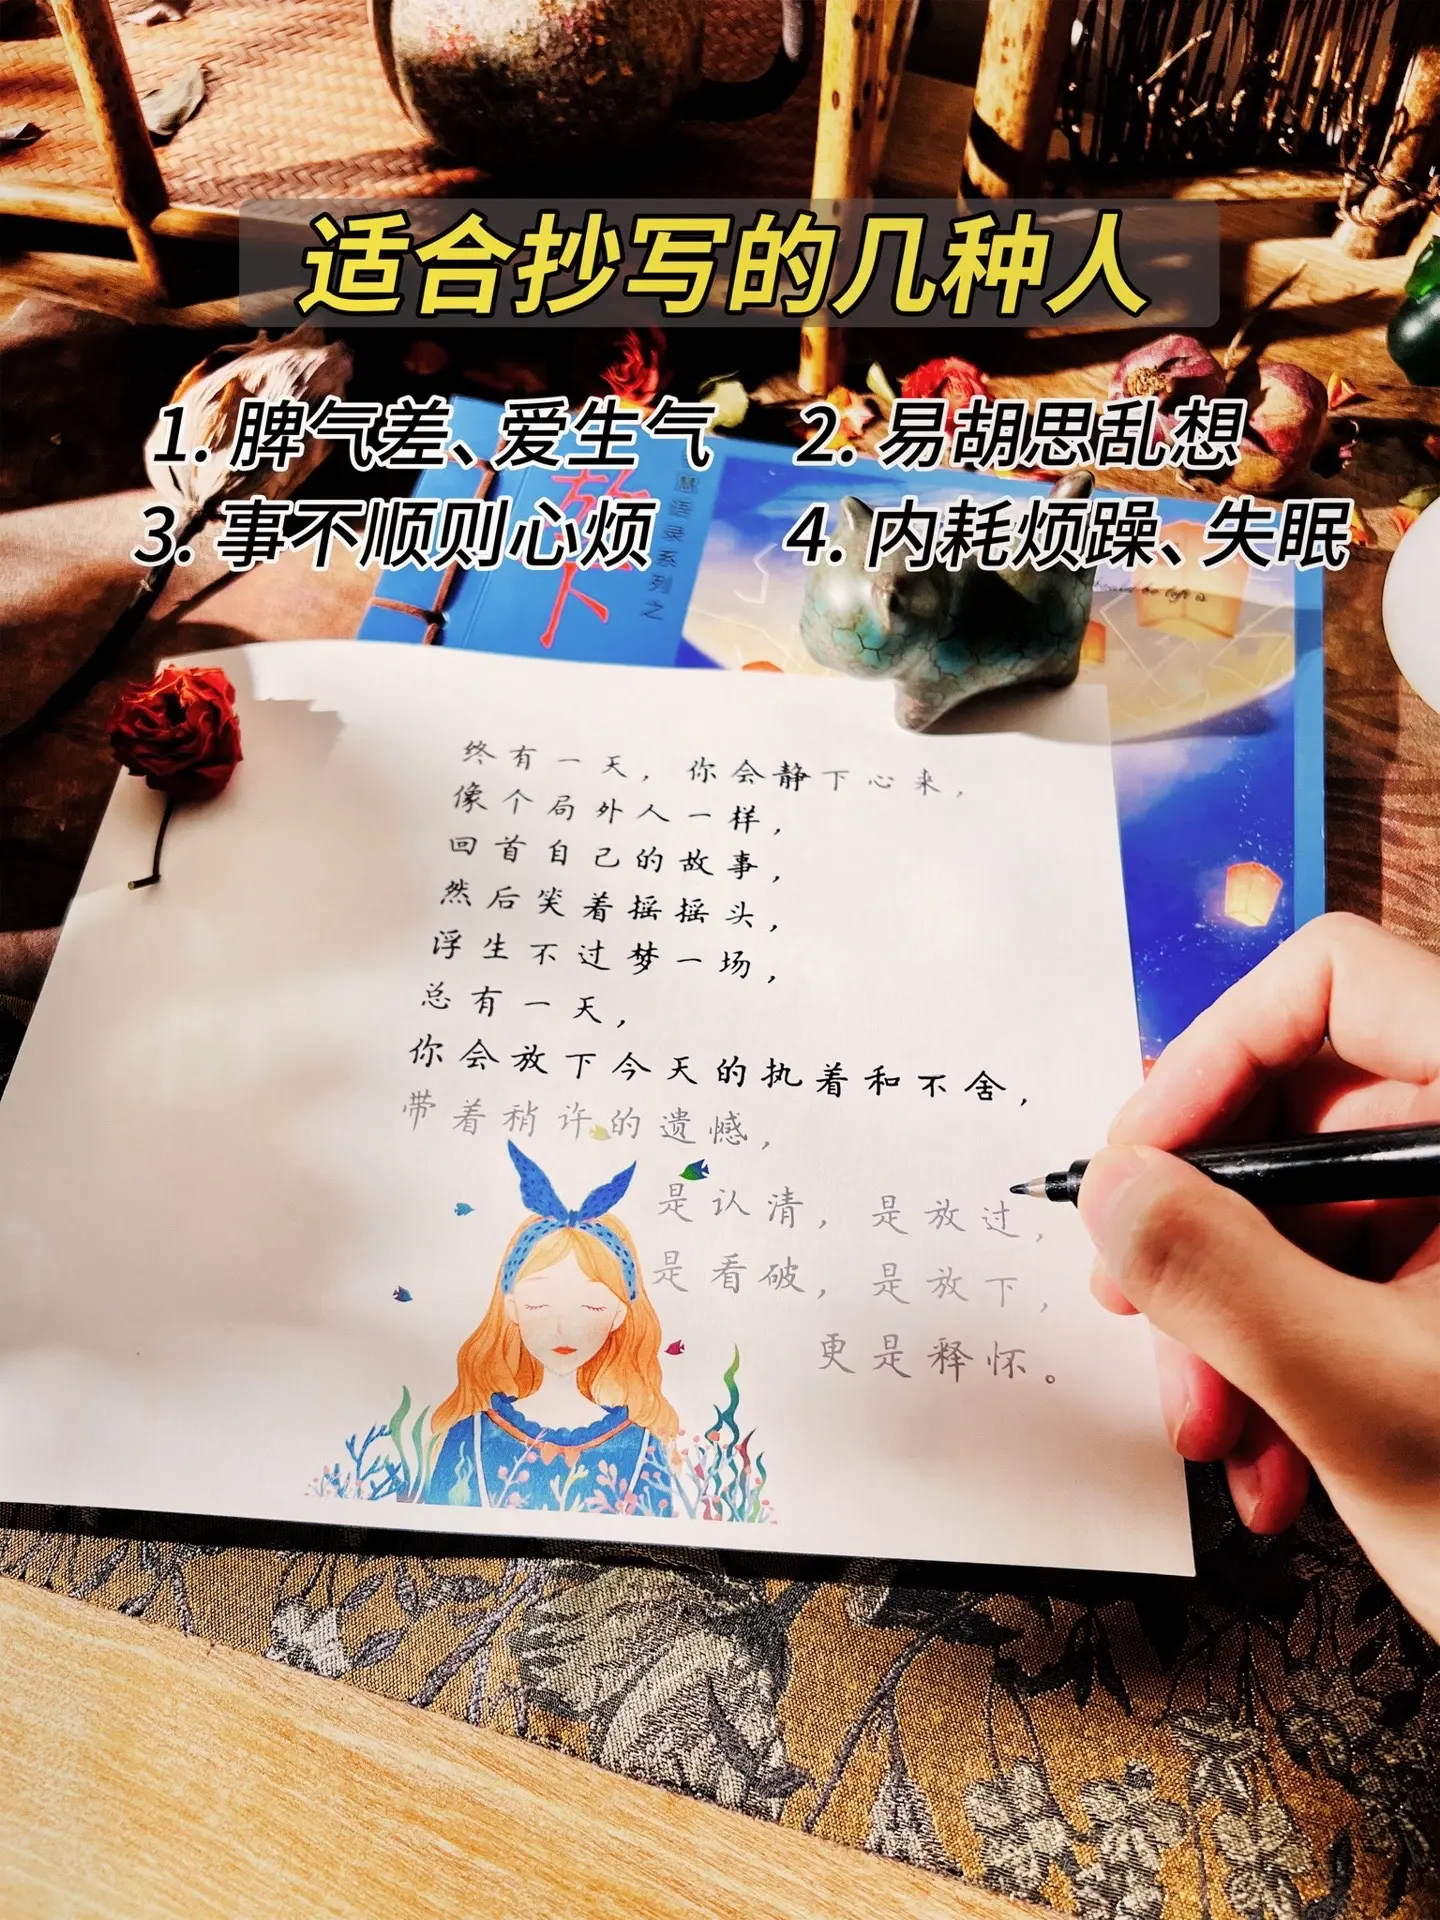 适合抄写的几种人
1. 脾气差、爱生气 2. 易胡思乱想
3. 事不顺则心烦 4. 内耗烦躁、失眠
放下
慧语录系列之
终有一天，你会静下心来，
像个局外人一样，
回首自己的故事，
然后笑着摇摇头，
浮生不过梦一场，
总有一天，
你会放下今天的执着和不舍，
带着稍许的遗憾，
是认清，是放过，
是看破，是放下，
更是释怀。